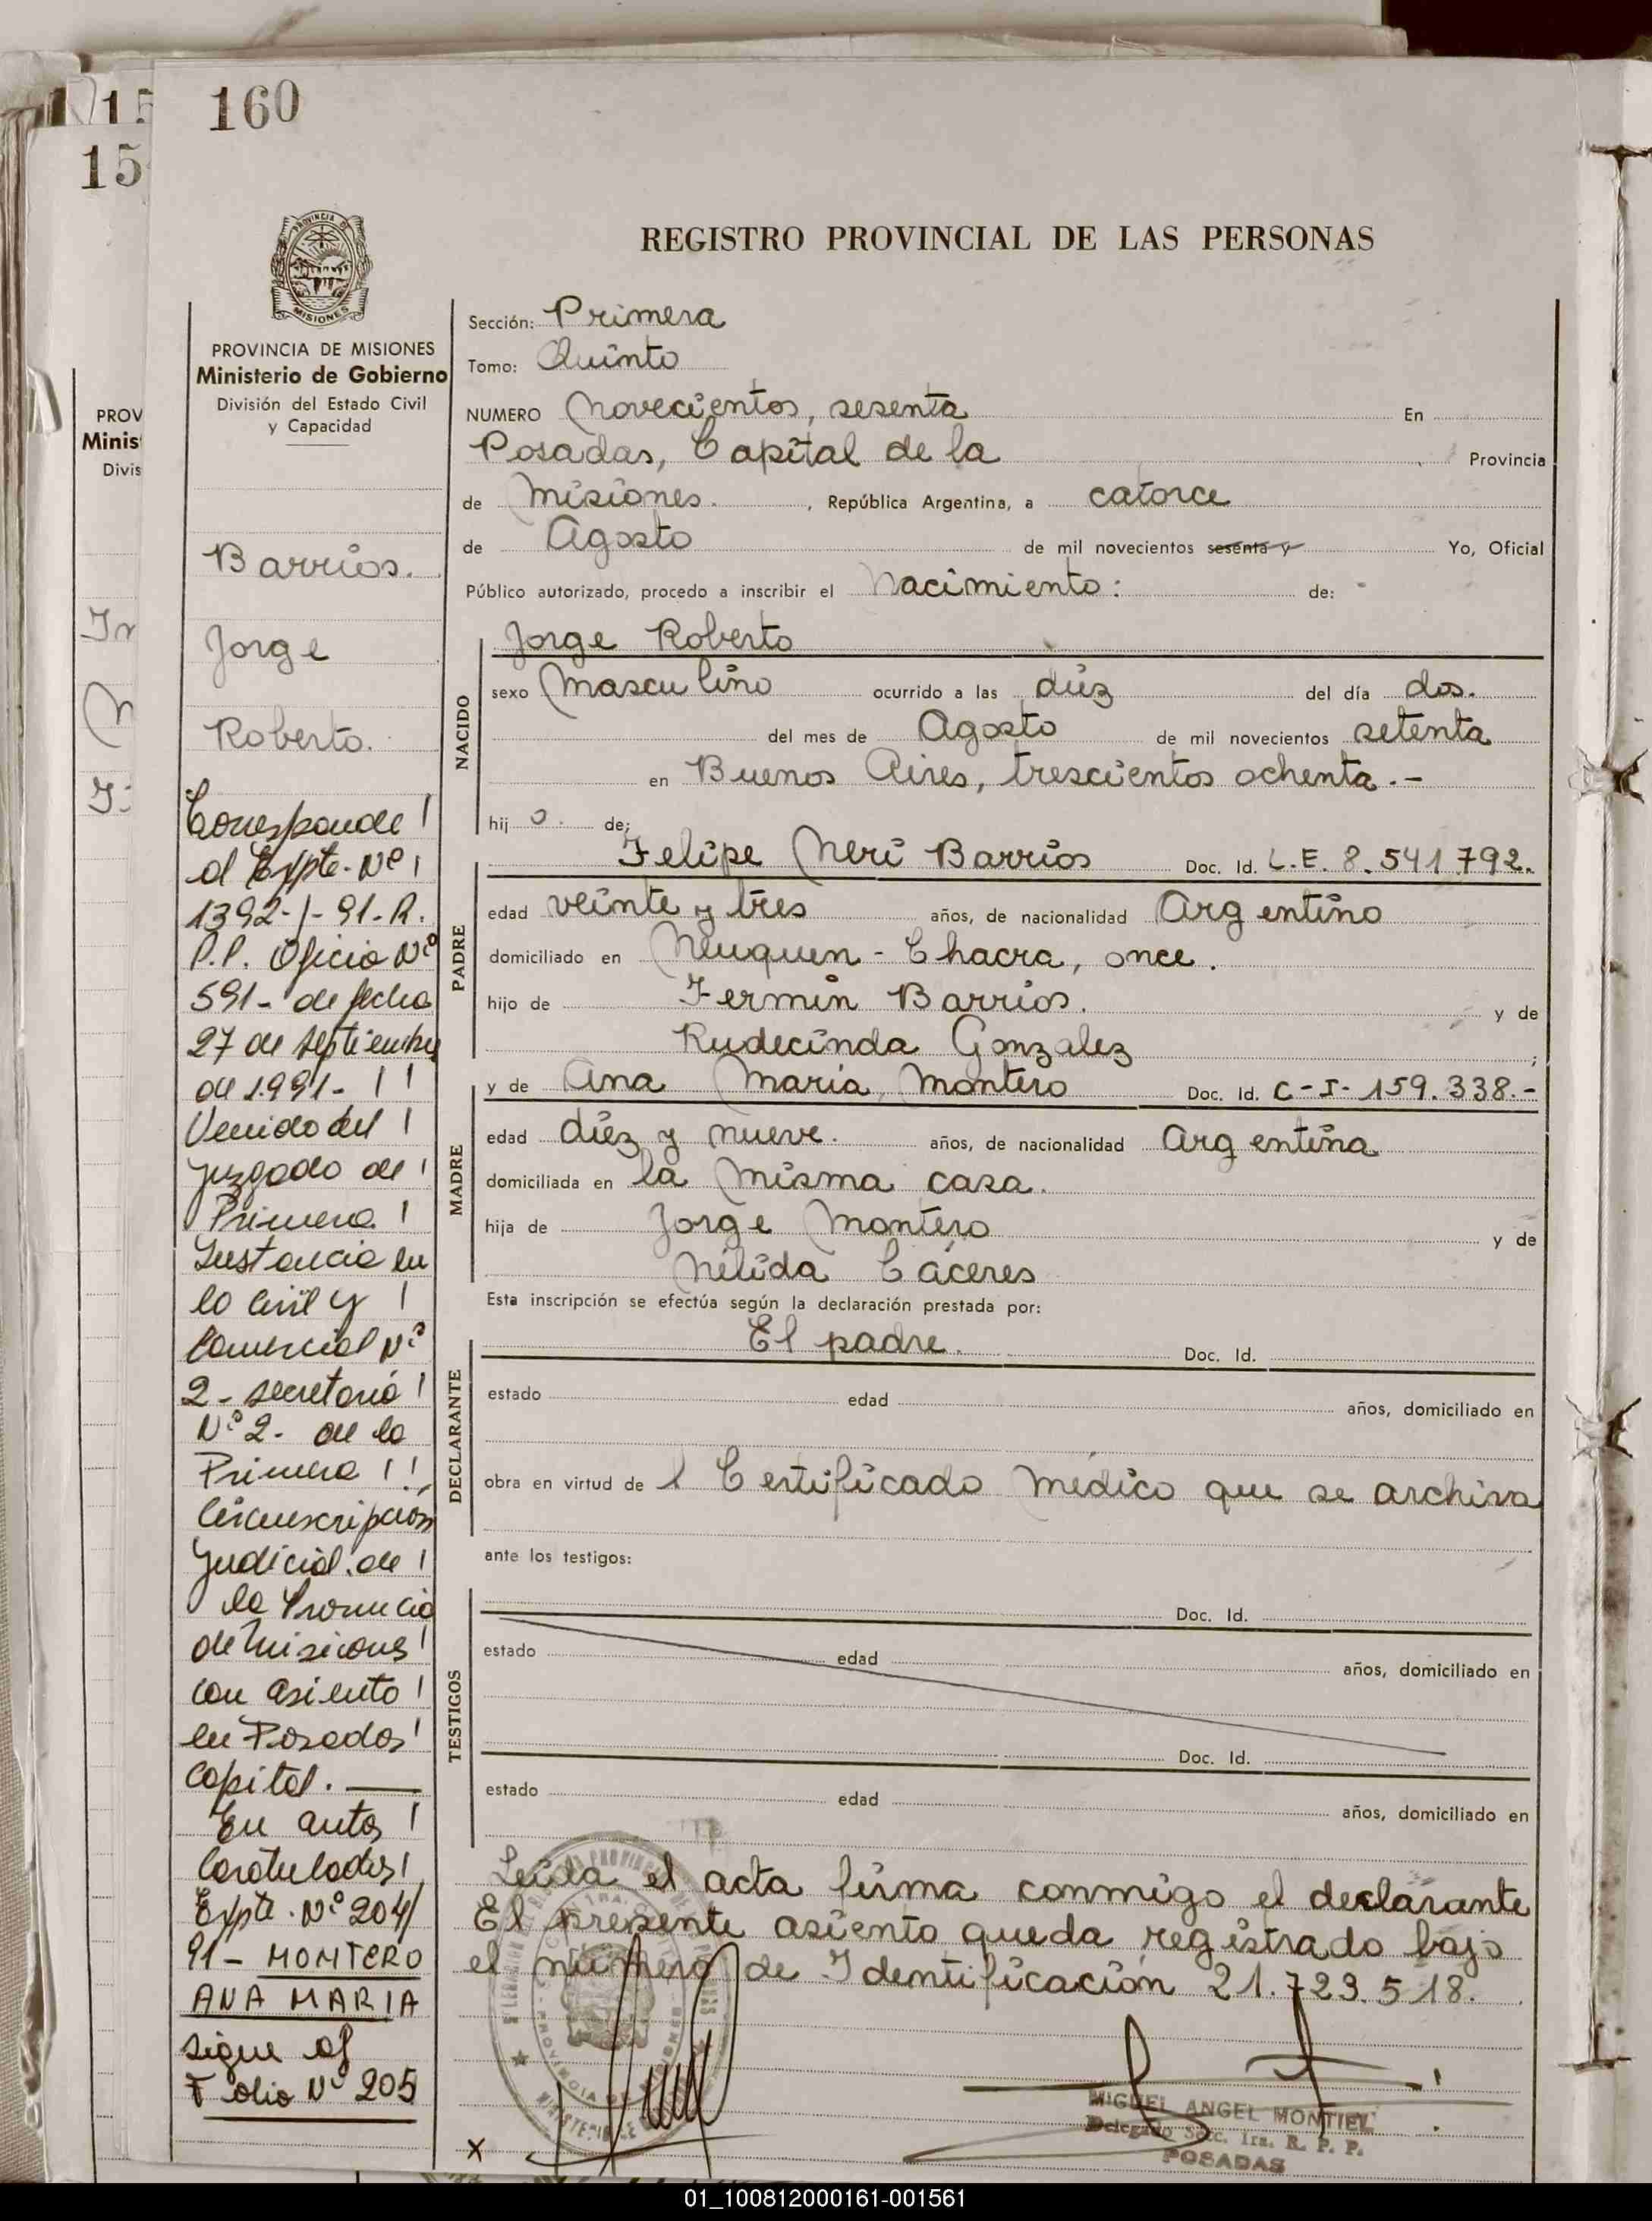 160
15
15
PROVINCIA DE
MISIONES
REGISTRO PROVINCIAL DE LAS PERSONAS
PROVINCIA DE MISIONES
Ministerio de Gobierno
División del Estado Civil
y Capacidad
PROV
Minis
Divis
Barrios.
Jorge
Roberto.
Corresponde
al Expte. Nº
1392-/-91-R.
P.P. Oficio Nº
591- de fecha
27 de septiembre
de 1.991-
Venido del
Juzgado de
Primera
Instancia en
lo Civil y
Comercial Nº
2- secretaria
Nº 2- de la
Primera
Circunscripción
Judicial de
la Provincia
de Misiones
con asiento
en Posadas
Capital.
En autos
Caratulados
Expte. Nº 204/
91- MONTERO
ANA MARIA
sigue al
Folio Nº 205
Sección: Primera
Tomo: Quinto
NUMERO Novecientos, sesenta En
Posadas, Capital de la Provincia
de Misiones. , República Argentina, a catorce
de Agosto de mil novecientos sesenta y Yo, Oficial
Público autorizado, procedo a inscribir el Nacimiento: de:
NACIDO
Jorge Roberto
sexo Masculino ocurrido a las diéz del día dos.
del mes de Agosto de mil novecientos setenta
en Buenos Aires, trescientos ochenta.-
hij o. de;
PADRE
Felipe Neri Barrios Doc. Id. L.E. 8.541.792.
edad veinte y tres años, de nacionalidad Argentino
domiciliado en Neuquen - Chacra, once.
hijo de Fermin Barrios. y de
Rudecinda Gonzalez ;
MADRE
y de Ana Maria Montero Doc. Id. C-I- 159.338.-
edad diéz y nueve. años, de nacionalidad Argentina
domiciliada en la misma casa.
hija de Jorge Montero y de
Nélida Cáceres
Esta inscripción se efectúa según la declaración prestada por:
DECLARANTE
El padre. Doc. Id.
estado edad años, domiciliado en
obra en virtud de l Certificado médico que se archiva
ante los testigos:
TESTIGOS
Doc. Id.
estado edad años, domiciliado en
Doc. Id.
estado edad años, domiciliado en
Leida el acta firma conmigo el declarante
El presente asiento queda registrado bajo
el número de Identificación 21.723.518.
MIGUEL ANGEL MONTIEL
Delegado Secc. 1ra. R. P. P.
POSADAS
X
01_100812000161-001561